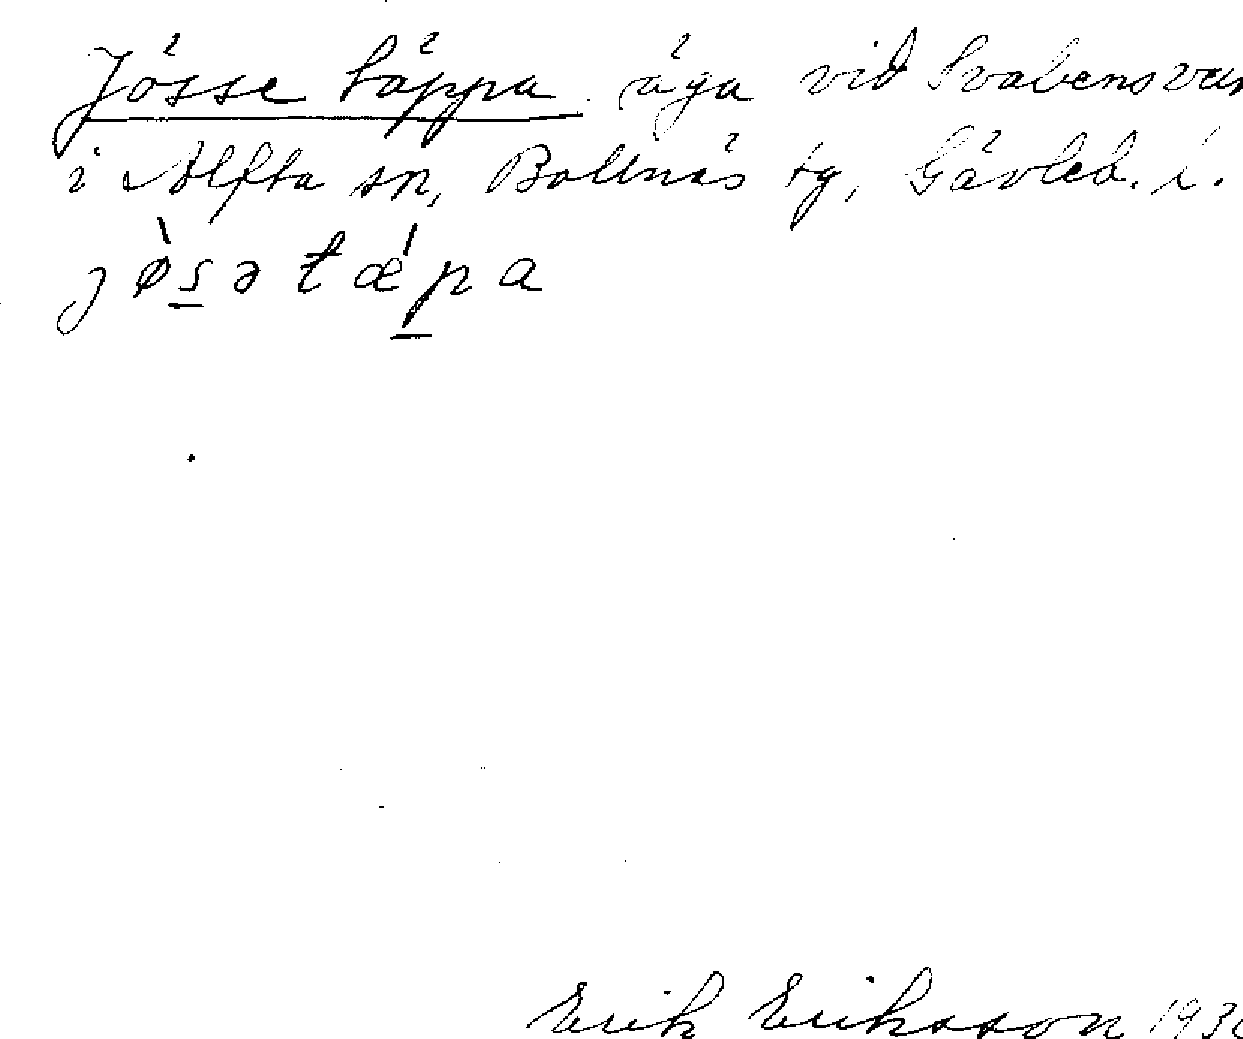 Jösse täppa äga vid Svabensver
i Alfta sn, Bollnäs tg, Gävleb. l.
jø̀sə tǽpa
Erik Eriksson 193